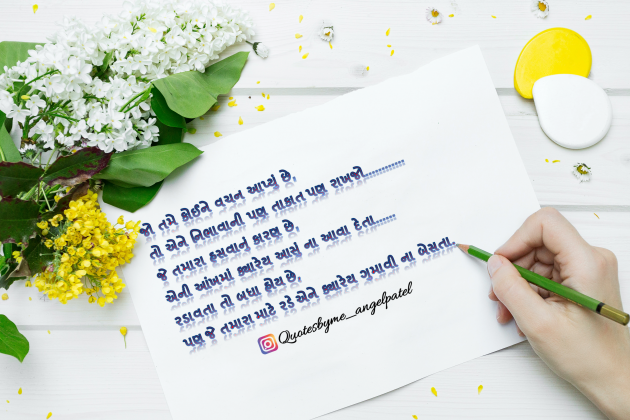 જો તમે કોઇને વચન આપ્યું છે,
તો એને નિભાવાની પણ તાકાત પણ રાખજો............
જે તમારા હસવાનું કારણ છે,
એની આંખમાં ક્યારેય આસું ના આવા દેતા......
રડાવતા તો બધા હોય છે,
પણ જે તમારા માટે રડે એને ક્યારેય ગમાવી ના બેસતા..
Quotesbyme_angelpatel